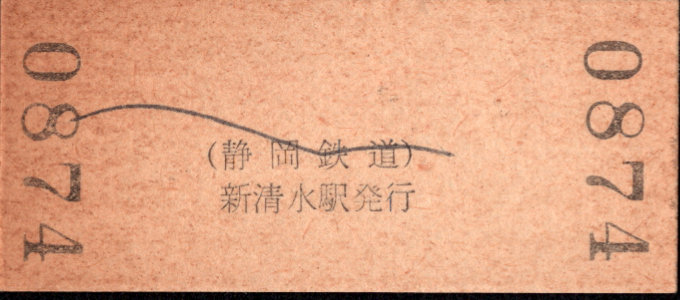 0874
(静岡鉄道)
新清水駅発行
0874